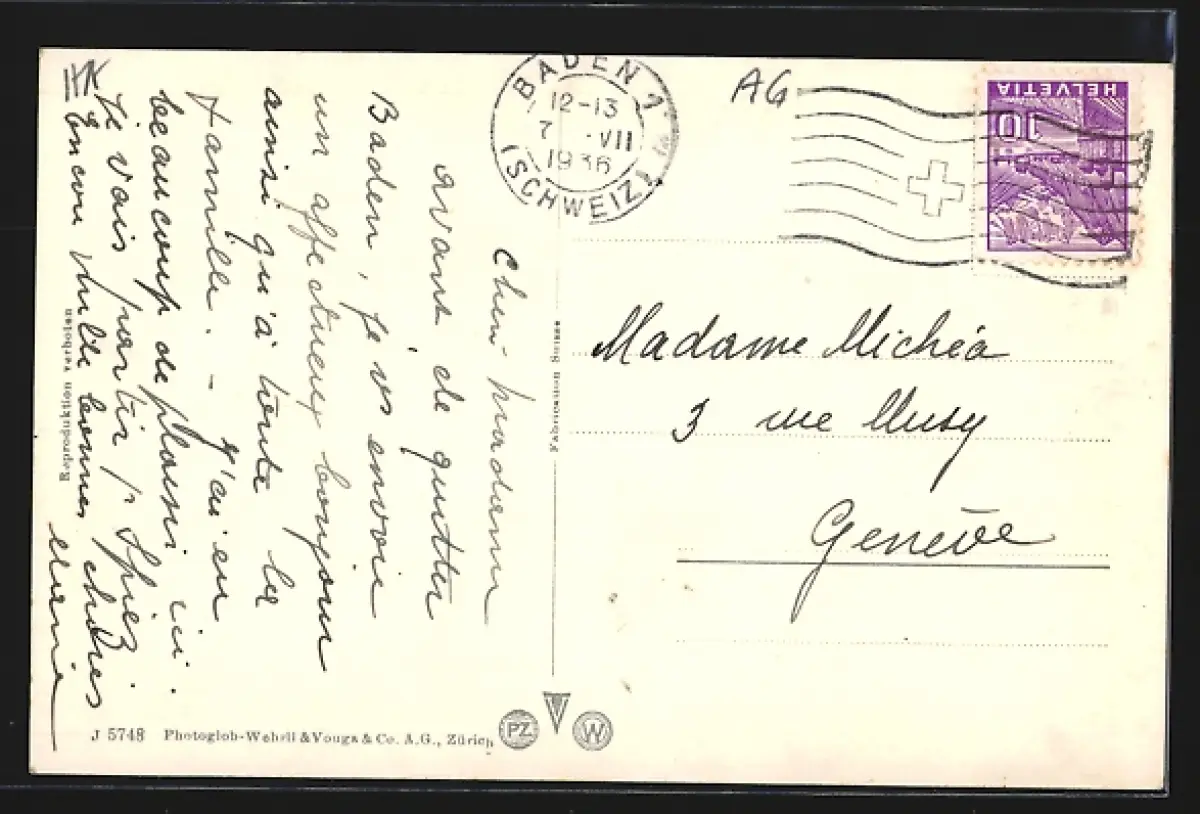 Chère Madame
avant de quitter
Baden, je vs envoie
un affectueux bonjour
ainsi qu'à toute la
famille. – J'ai eu
beaucoup de plaisir ici.
Je vais partir p/ Spiez
Encore mille bonnes choses
Marie
BADEN 1
12-13
7 -VII
1936
(SCHWEIZ)
AG
HELVETIA
10
Madame Michéa
3 rue Musy
Genève
Fabrication Suisse
Reproduktion verboten
J 5748 Photoglob-Wehrli & Vouga & Co. A.G., Zürich
PZ
W